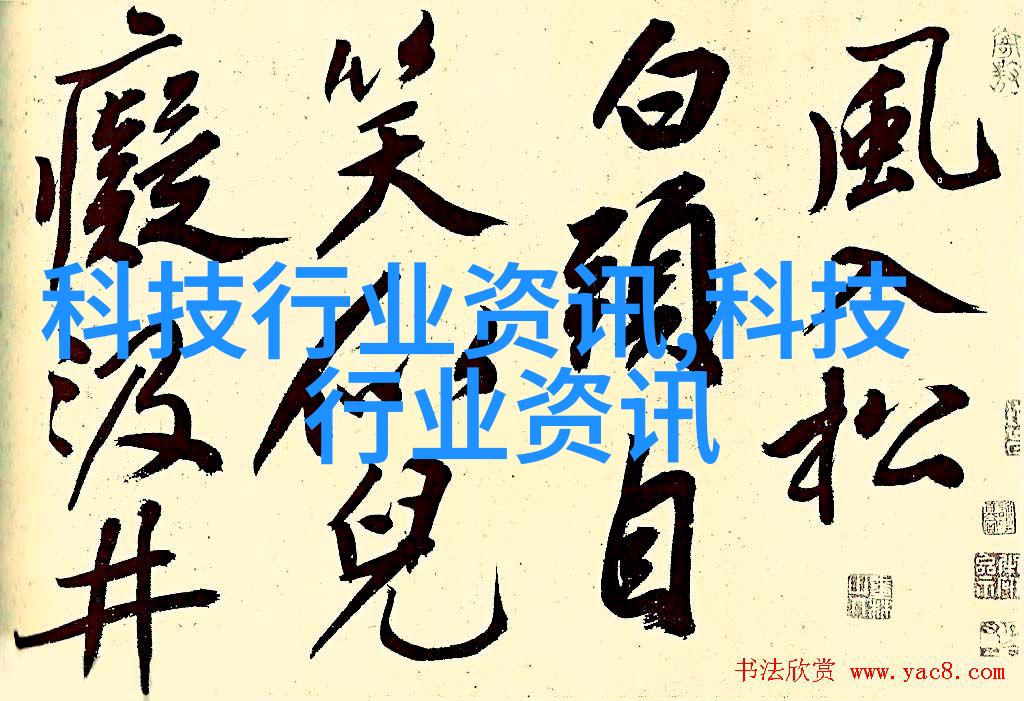 風入松
白頭自
笑兒
癡汲井
科技行业资讯,科技
行业资讯
书法欣赏 www.yac8.com